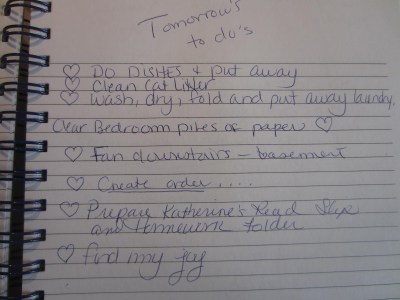 Tomorrow's
to do's
♡ DO DISHES & put away
♡ Clean Cat Litter
♡ Wash, dry, fold and put away laundry.
Clear Bedroom piles of paper ♡
♡ Fan downstairs – basement
♡ Create order....
♡ Prepare Katherine's Read
and Homework folder
♡ find my joy